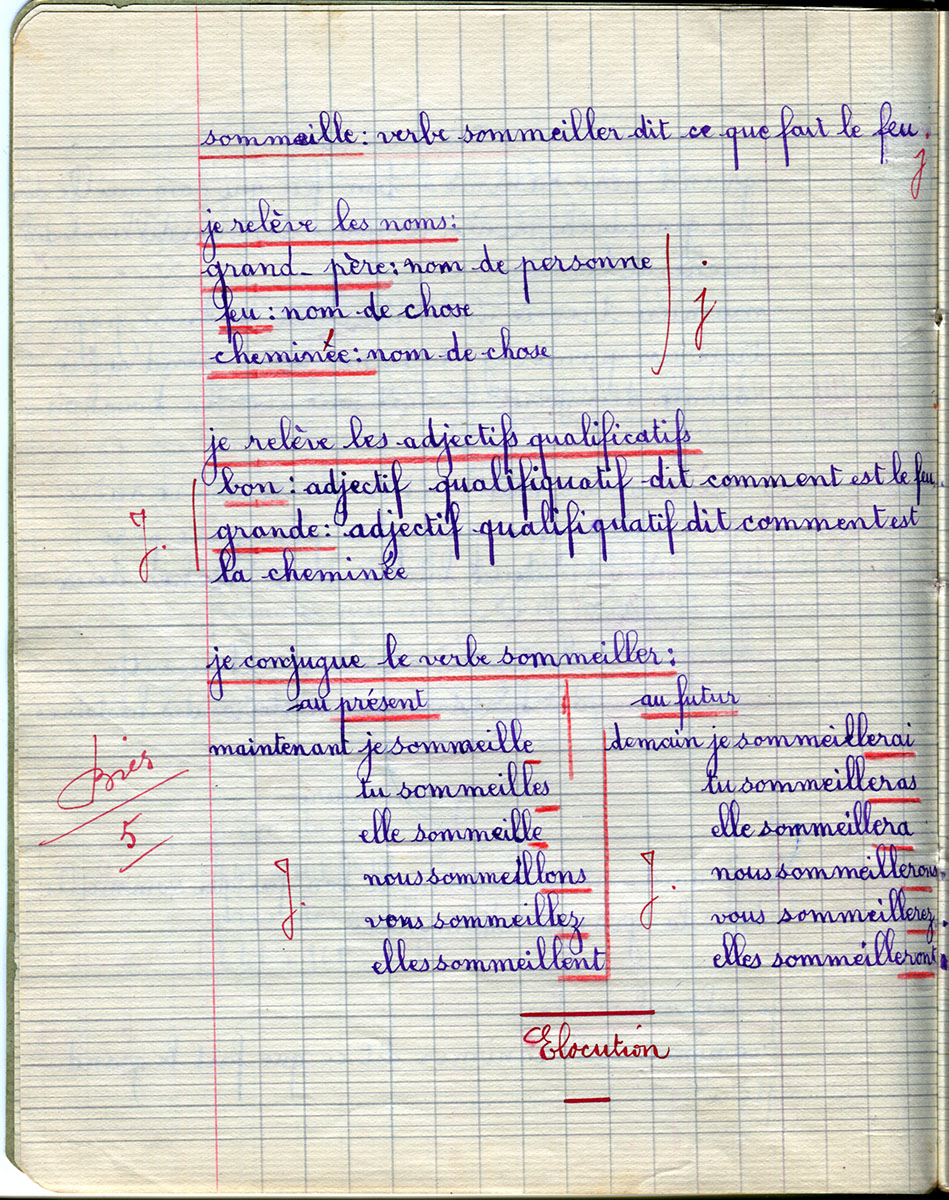 sommeille : verbe sommeiller dit ce que fait le feu.
j
je relève les noms :
grand-père : nom de personne
feu : nom de chose
j
cheminée : nom de chose
je relève les adjectifs qualificatifs
bon : adjectif qualifiquatif dit comment est le feu.
grande : adjectif qualifiquatif dit comment est
j.
la cheminée
je conjugue le verbe sommeiller :
au présent
maintenant je sommeille
tu sommeilles
elle sommeille
nous sommeillons
vous sommeillez
elles sommeillent
j.
au futur
demain je sommeillerai
tu sommeilleras
elle sommeillera
nous sommeillerons.
vous sommeillerez.
elles sommeilleront.
j.
5
Elocution